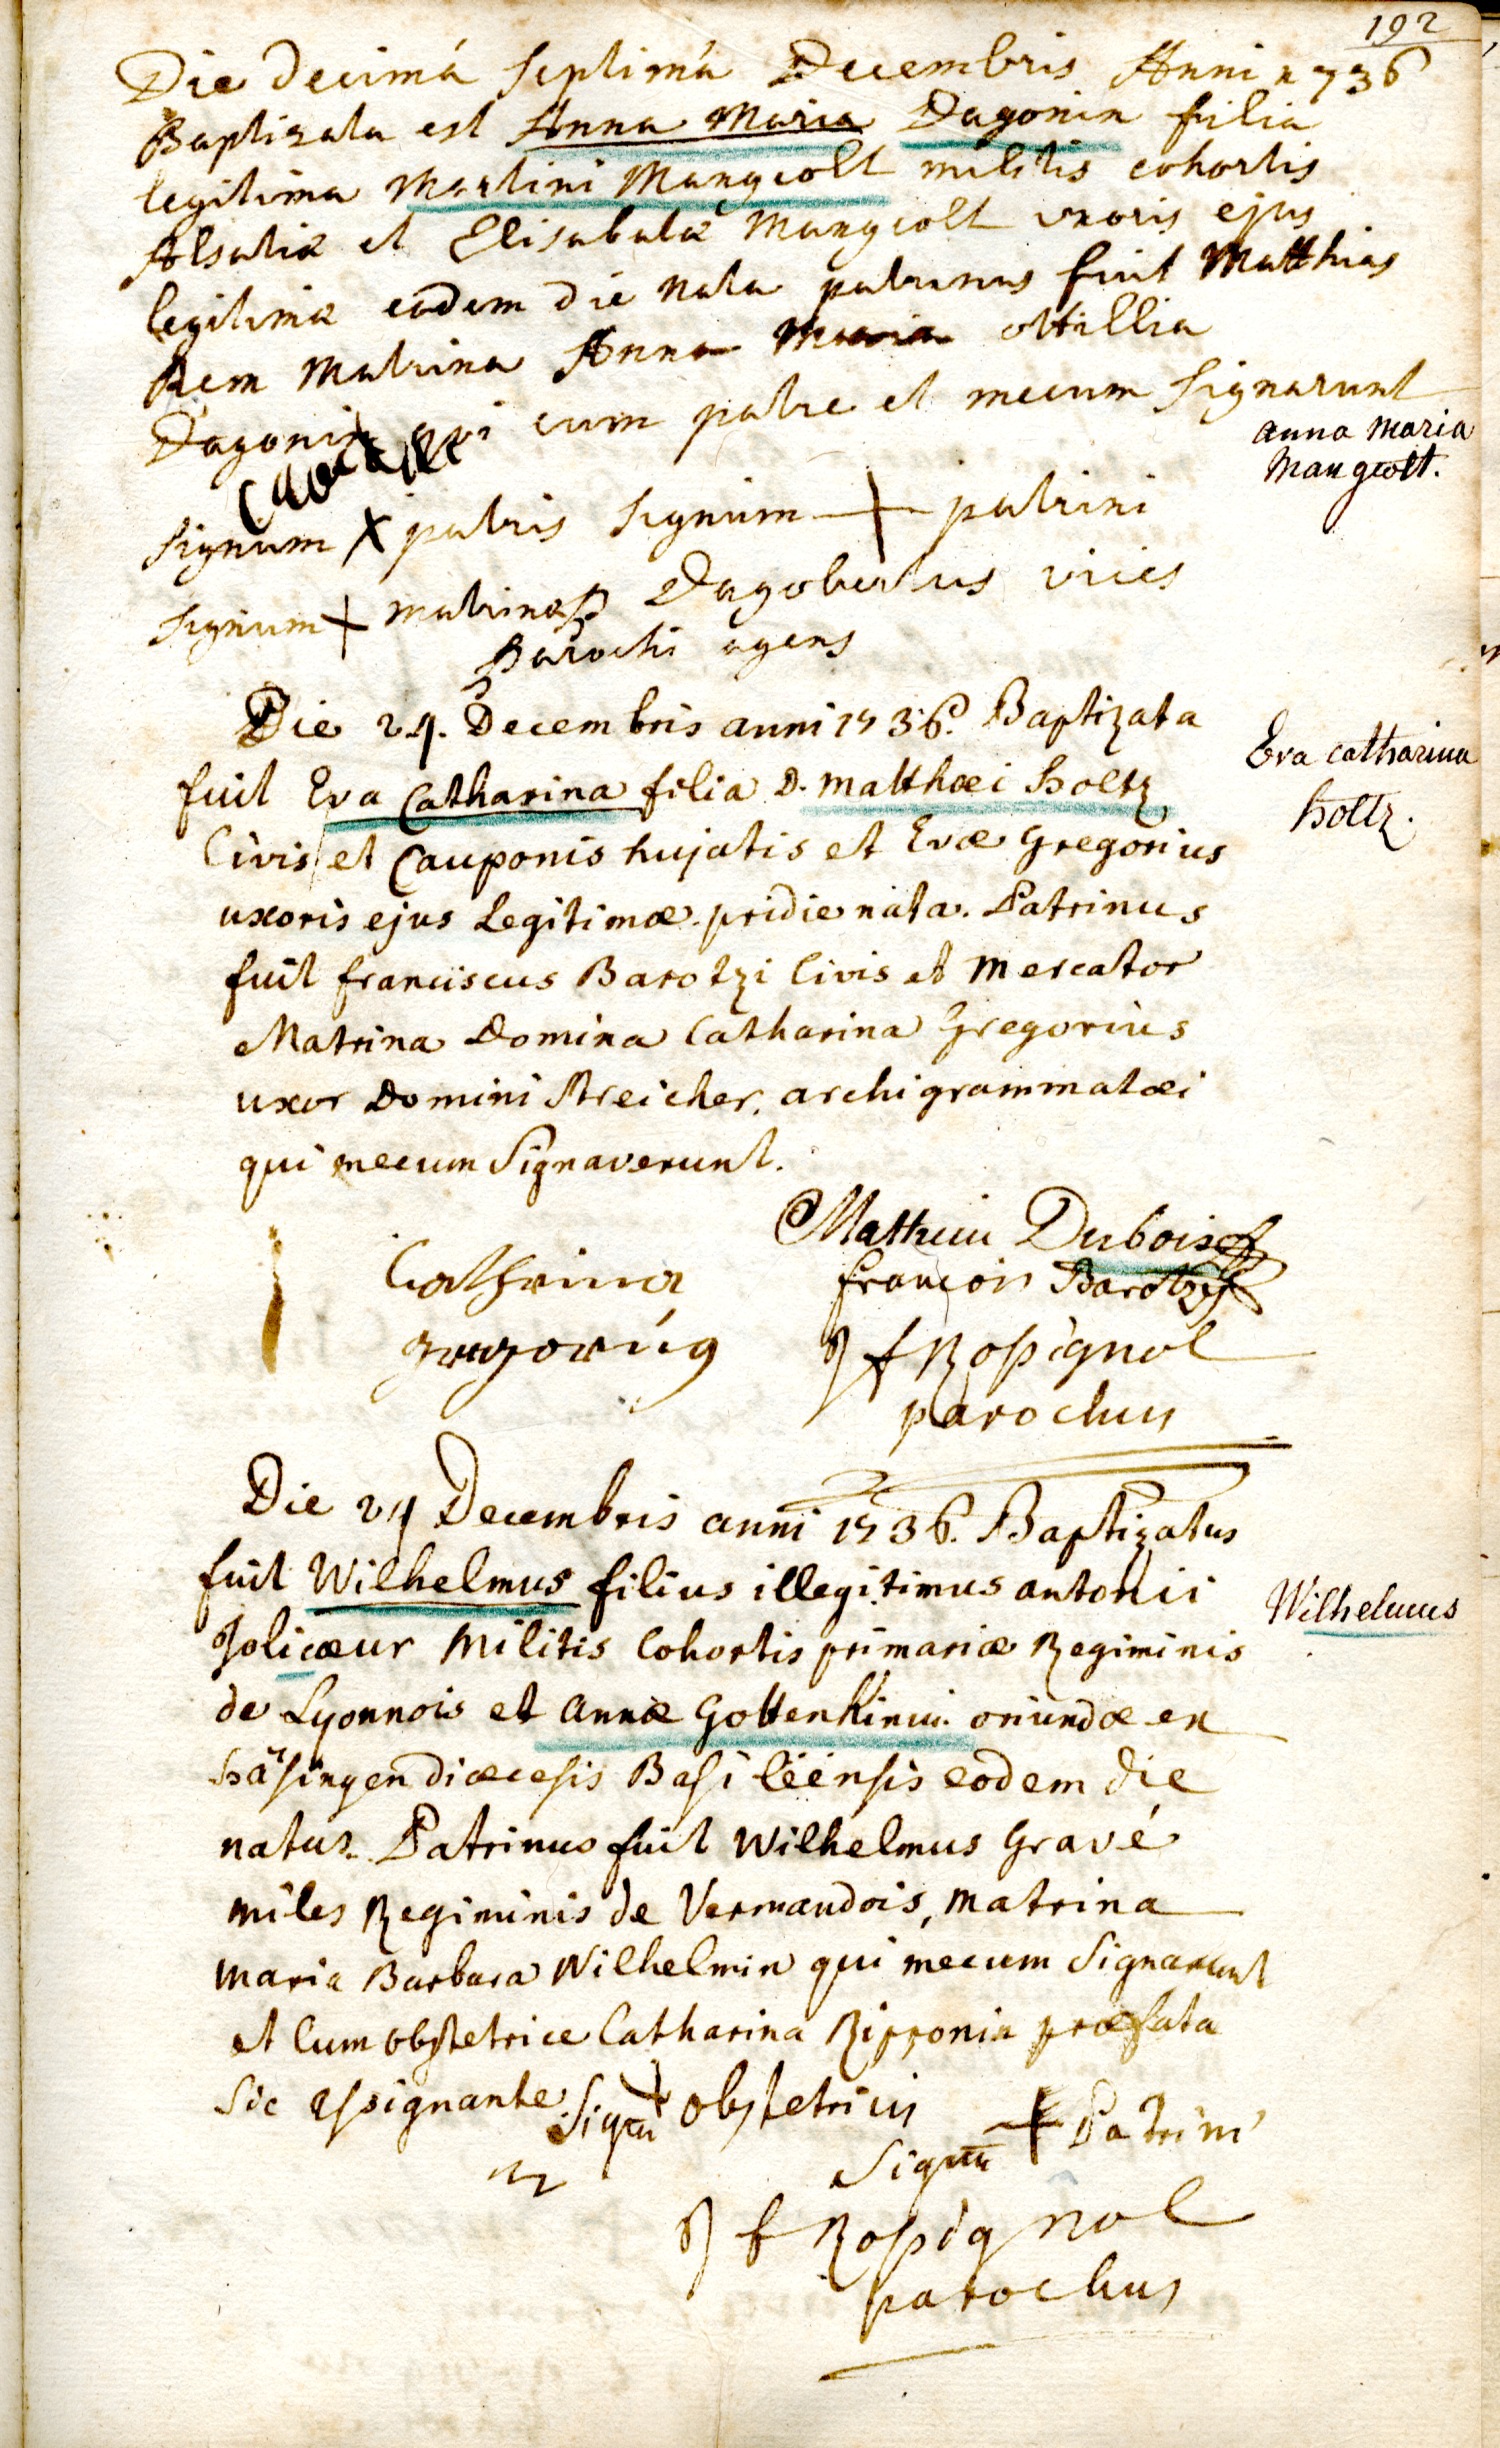 192
Die decimâ septimâ Decembris Anni 1736
Baptizata est Anna Maria Dagonin filia
legitima Martini Mangeolt militis cohortis
Alsatiæ et Elisabetæ Mangeolt uxoris ejus
legitimæ eâdem die nata patrinus fuit Matthias
Rem Matrina Anna Maria ottillia
Dagonin qui cum patre et mecum signarunt
anna Maria
Mangeolt.
signum X patris signum + patrini
signum + matrinæ p Dagobertus vices
Parochi agens
Die 24. Decembris anni 1736. Baptizata
fuit Eva Catharina filia D. Matthæi Holtz
Civis et Cauponis hujatis et Evæ Gregorius
uxoris ejus Legitimæ pridie nata. Patrinus
fuit franciscus Barotzi Civis et Mercator
Matrina Domina Catharina Gregorius
uxor Domini Streicher archigrammatæi
qui mecum Signaverunt.
Eva Catharina
Holtz.
Mathieu Dubois
Cathrina françois Barotzy
gregoriuß J f Rossignol
parochus
Die 24 Decembris anni 1736. Baptizatus
fuit Wilhelmus filius illegitimus antonii
Jolicœur Militis Cohortis primariæ Regiminis
de Lyonnois et annæ Gottenkinin oriundæ ex
Häsingen diœcesis Basileensis eodem die
natus. Patrinus fuit Wilhelmus Gravé
miles Regiminis de Vermandois, Matrina
Maria Barbara Wilhelmin qui mecum Signarunt
et Cum obstetrice Catharina Ripponin præfata
Sic assignante Signu + obstetricis
Wilhelmus
Signu + Patrini
J f Rossignol
parochus